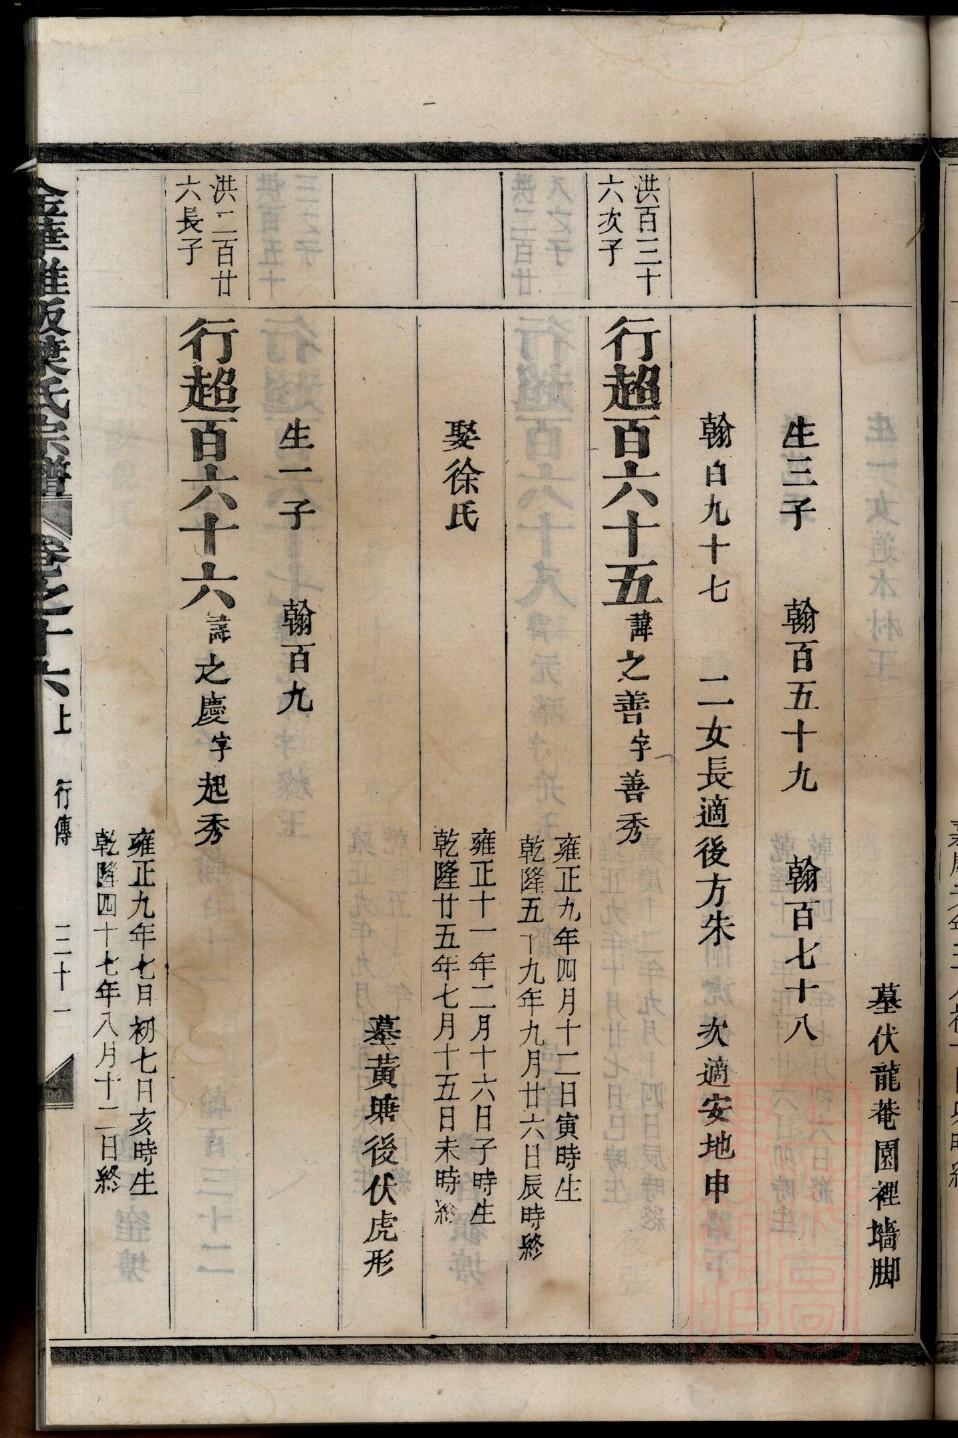 墓伏龍菴園裡墻脚
生三子 翰百五十九 翰百七十八
翰百九十七 二女長適後方朱 次適安地申
洪百三十
六次子
行超百六十五諱之善字善秀
雍正九年四月十二日寅時生
乾隆五十九年九月廿六日辰時終
娶徐氏
雍正十一年二月十六日子時生
乾隆廿五年七月十五日未時終
墓黃塘後伏虎形
生一子 翰百九
洪二百廿
六長子
行超百六十六諱之慶字起秀
雍正九年七月初七日亥時生
乾隆四十七年八月十二日終
金華雅畈葉氏宗譜 卷之十六上 行傳 三十一